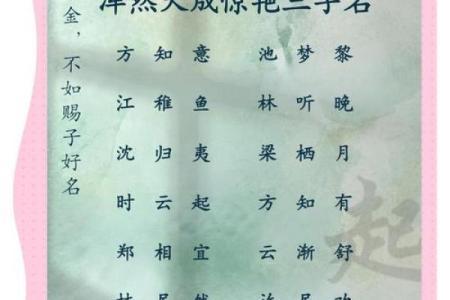 浑然天成惊艳三字名
金，不如赐子好名
方知意 池梦黎
江稚鱼 林听晚
沈归夷 梁栖月
时云起 方知有
郑相宜 云渐舒
起